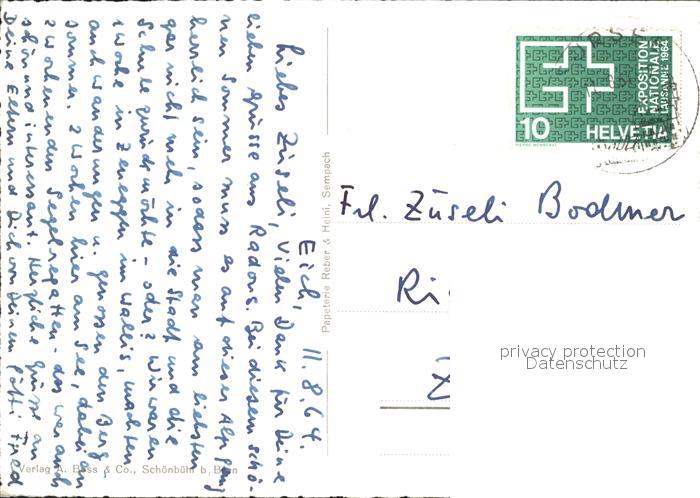 Eich, 11.8.64.
Liebes Züseli, Vielen Dank für Deine
lieben Grüsse aus Radons. Bei diesem schö-
nen Sommer muss es auf dieser Alp ganz
herrlich sein, sodass man am liebsten
gar nicht mehr in die Stadt und die
Schule zurück möchte - oder? Wir waren
1 Woche in Zeneggen im Wallis, machten
auch Wanderungen u. genossen den Berg-
sommer. 2 Wochen hier am See, dabei an
2 Wochenenden Segelregatten - das war auch
schön und interessant. Herzliche Grüsse an
Deine Eltern und Dich von Deinem Götti Fred
Verlag A. Boss & Co., Schönbühl b. Bern
Papeterie Reber & Heini, Sempach
EXPOSITION
NATIONALE
LAUSANNE 1964
10 HELVETIA
Frl. Züseli Bodmer
Ri
Z
privacy protection
Datenschutz